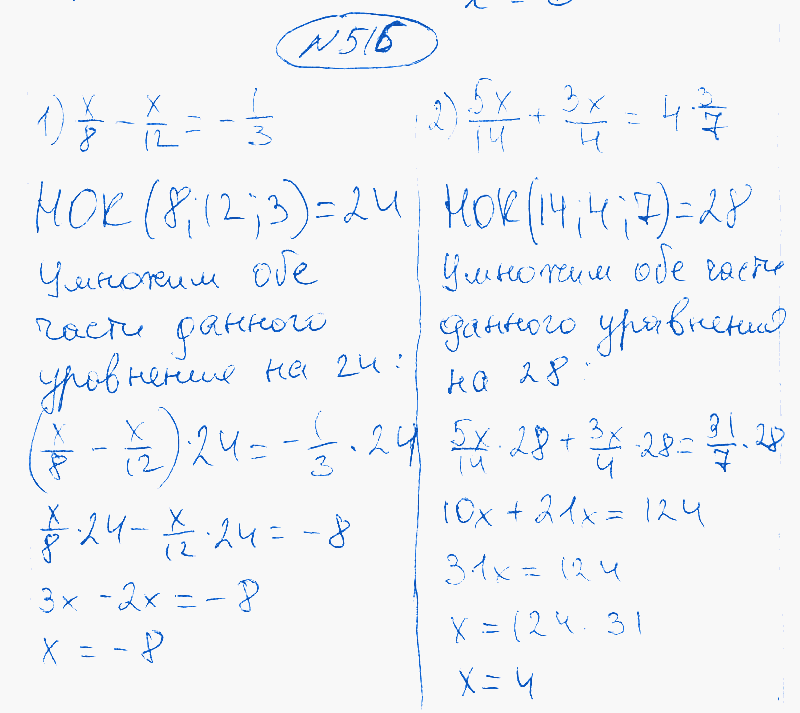 N516
1) x/8 - x/12 = - 1/3
НОК(8;12;3)=24
Умножим обе
части данного
уравнение на 24:
(x/8 - x/12)·24 = - 1/3 · 24
x/8 · 24 - x/12 · 24 = -8
3x - 2x = -8
x = -8
2) 5x/14 + 3x/4 = 4 3/7
НОК(14;4;7)=28
Умножим обе части
данного уравнения
на 28:
5x/14 · 28 + 3x/4 · 28 = 31/7 · 28
10x + 21x = 124
31x = 124
x = 124 : 31
x = 4